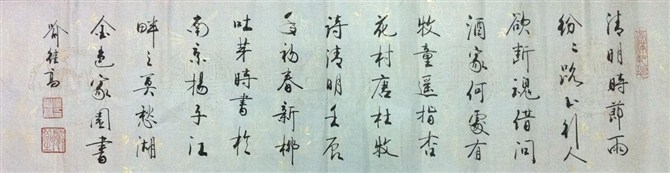 清明時節雨
紛〻路上行人
欲斷魂借問
酒家何處有
牧童遥指杏
花村唐杜牧
詩清明壬辰
年初春新柳
吐芽時書於
南京揚子江
畔之莫愁湖
金色家園書
喻継高